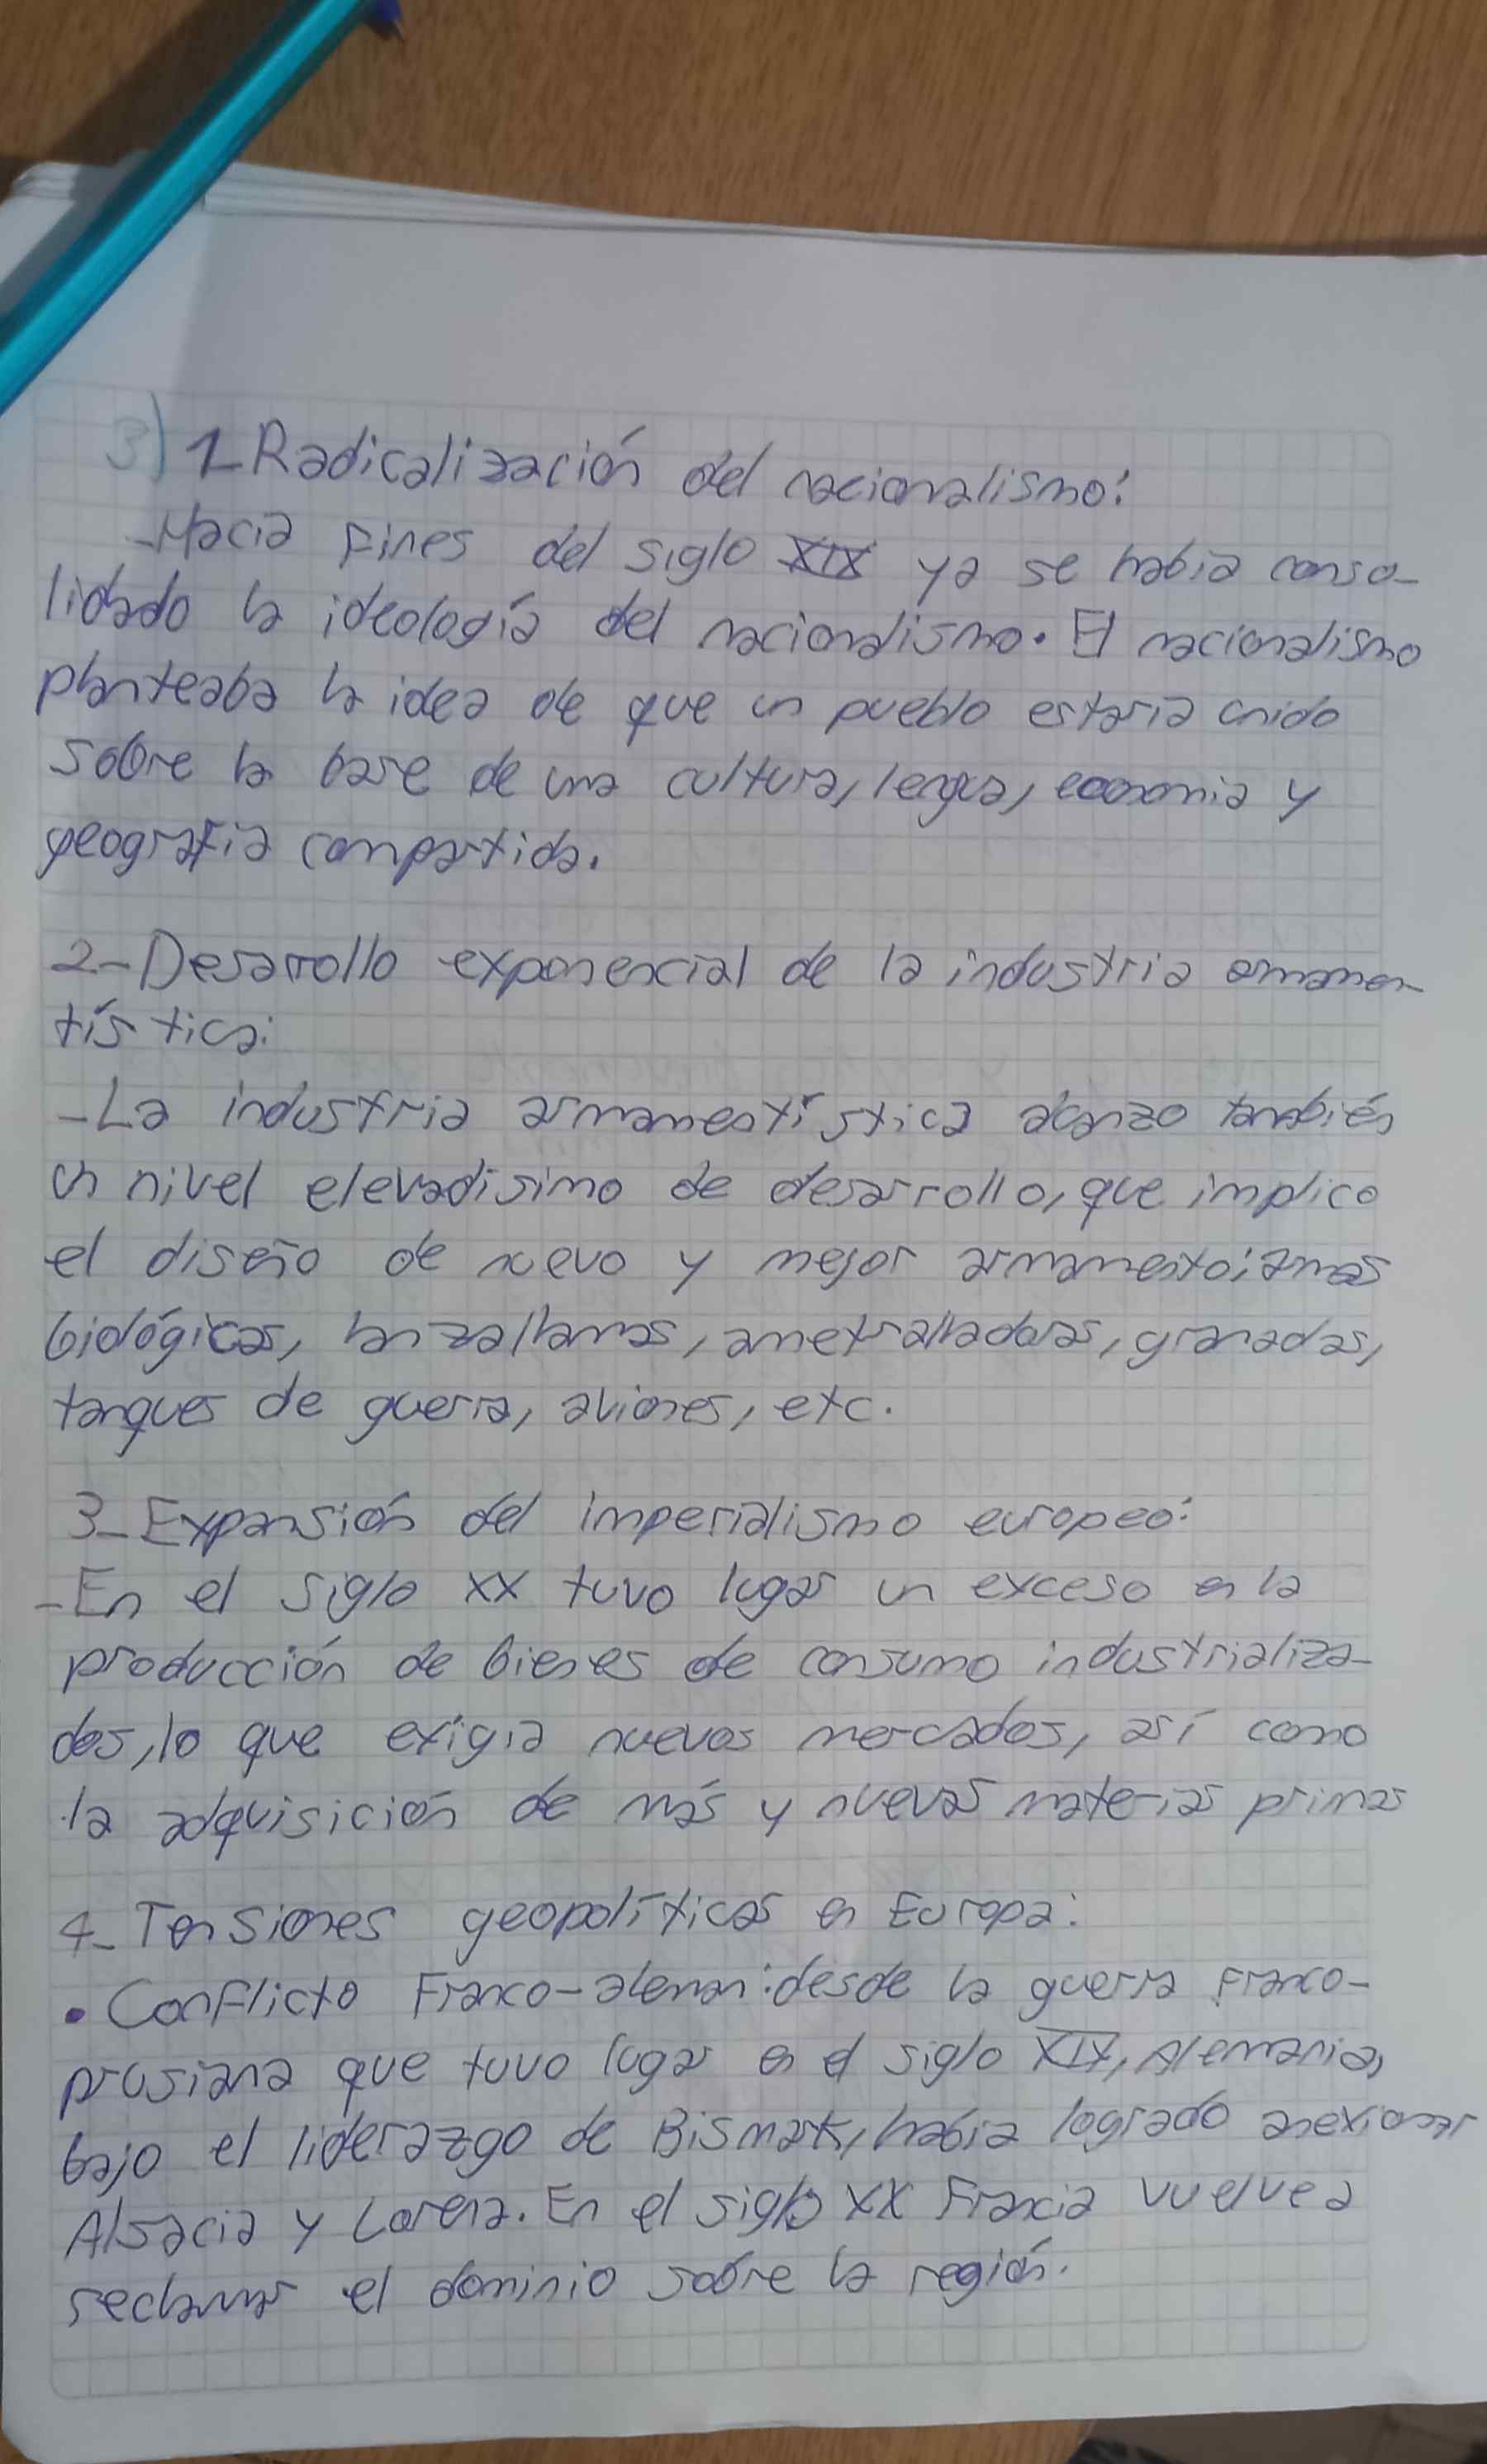 3) 1-Radicalización del nacionalismo:
-Hacia fines del siglo XIX ya se había conso-
lidado la ideología del nacionalismo. El nacionalismo
planteaba la idea de que un pueblo estaria unido
sobre la base de una cultura, lengua, economia y
geografia compartida.
2-Desarrollo exponencial de la industria armamen-
tística:
-La industria armamentística alcanzo también
un nivel elevadisimo de desarrollo, que implico
el diseño de nuevo y mejor armamento: armas
biológicas, lanzallamas, ametralladoras, granadas,
tanques de guerra, aviones, etc.
3-Expansión del imperialismo europeo:
-En el siglo XX tuvo lugar un exceso en la
producción de bienes de consumo industrializa-
dos, lo que exigia nuevos mercados, así como
la adquisición de más y nuevas materias primas
4-Tensiones geopolíticas en Europa:
• Conflicto Franco-aleman: desde la guerra Franco-
prusiana que tuvo lugar en el siglo XIX, Alemania,
bajo el liderazgo de Bismark, había logrado anexionar
Alsacia y Lorena. En el siglo XX Francia vuelve a
reclamar el dominio sobre la región.